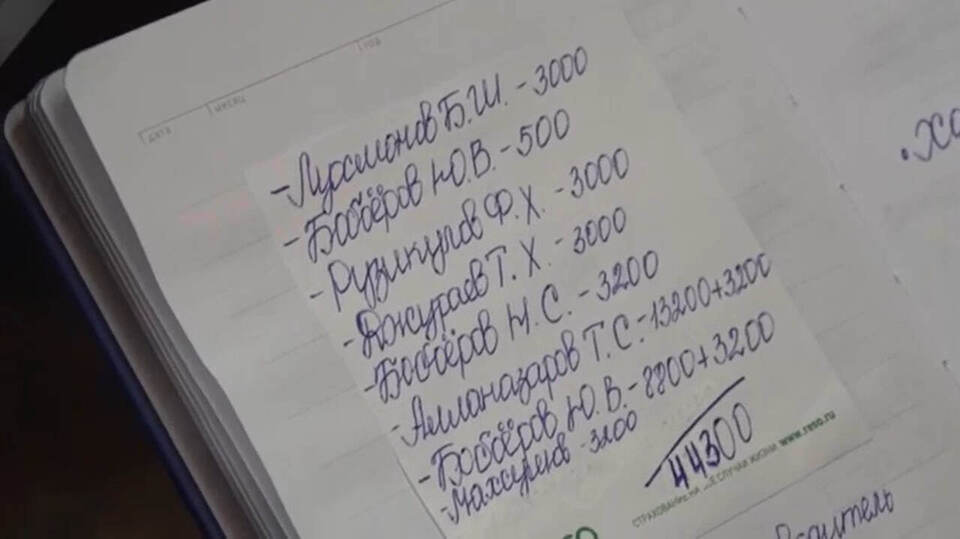 дата месяц год
- Нурсмонов Б.Ш. - 3000
- Бобоёров Ю.В. - 500
- Рузикулов Ф.Х. - 3000
- Джураев Т.Х. - 3000
- Бобоёров М.С. - 3200
- Алланазаров Т.С. - 13200+3200
- Бобоёров Ю.В. - 8800+3200
- Махсумов - 3200
44300
СТРАХОВАНИЕ НА СЛУЧАИ ЖИЗНИ www.reso.ru